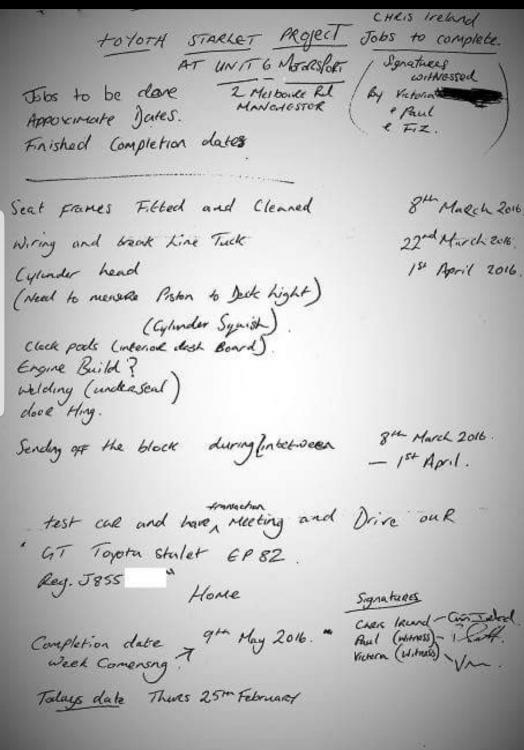 CHRIS Ireland
TOYOTA STARLET PROJECT Jobs to complete.
AT UNIT 6 MOTORSPORT
2 Melbourne Rd
MANCHESTER
(Signatures
witnessed
By Victoria
& Paul
& Fiz.)
Jobs to be done
Approximate Dates.
Finished Completion dates
Seat frames Fitted and Cleaned 8th March 2016
Wiring and break Line Tuck 22nd March 2016.
Cylinder head 1st April 2016.
(Need to mensure Piston to Deck hight)
(Cylinder Squish).
Clock pods (interior dash Board).
Engine Build?
Welding (underseal)
door Hing.
Sending off the block during/inbetween 8th March 2016.
— 1st April.
transaction
test car and have ^ Meeting and Drive our
" GT Toyota starlet EP82.
Reg. J855 "
Home
Completion date 9th May 2016. "
Week Comensng.
Signatures
CHRIS IRELAND –
Paul (witness) –
Victoria (witness) –
Todays date Thurs 25th February